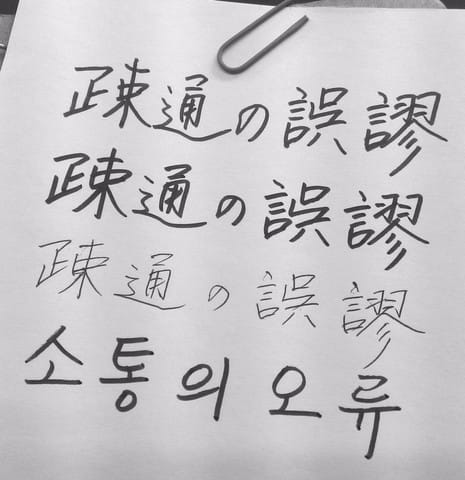 疎通の誤謬
疎通の誤謬
疎通の誤謬
소통의 오류